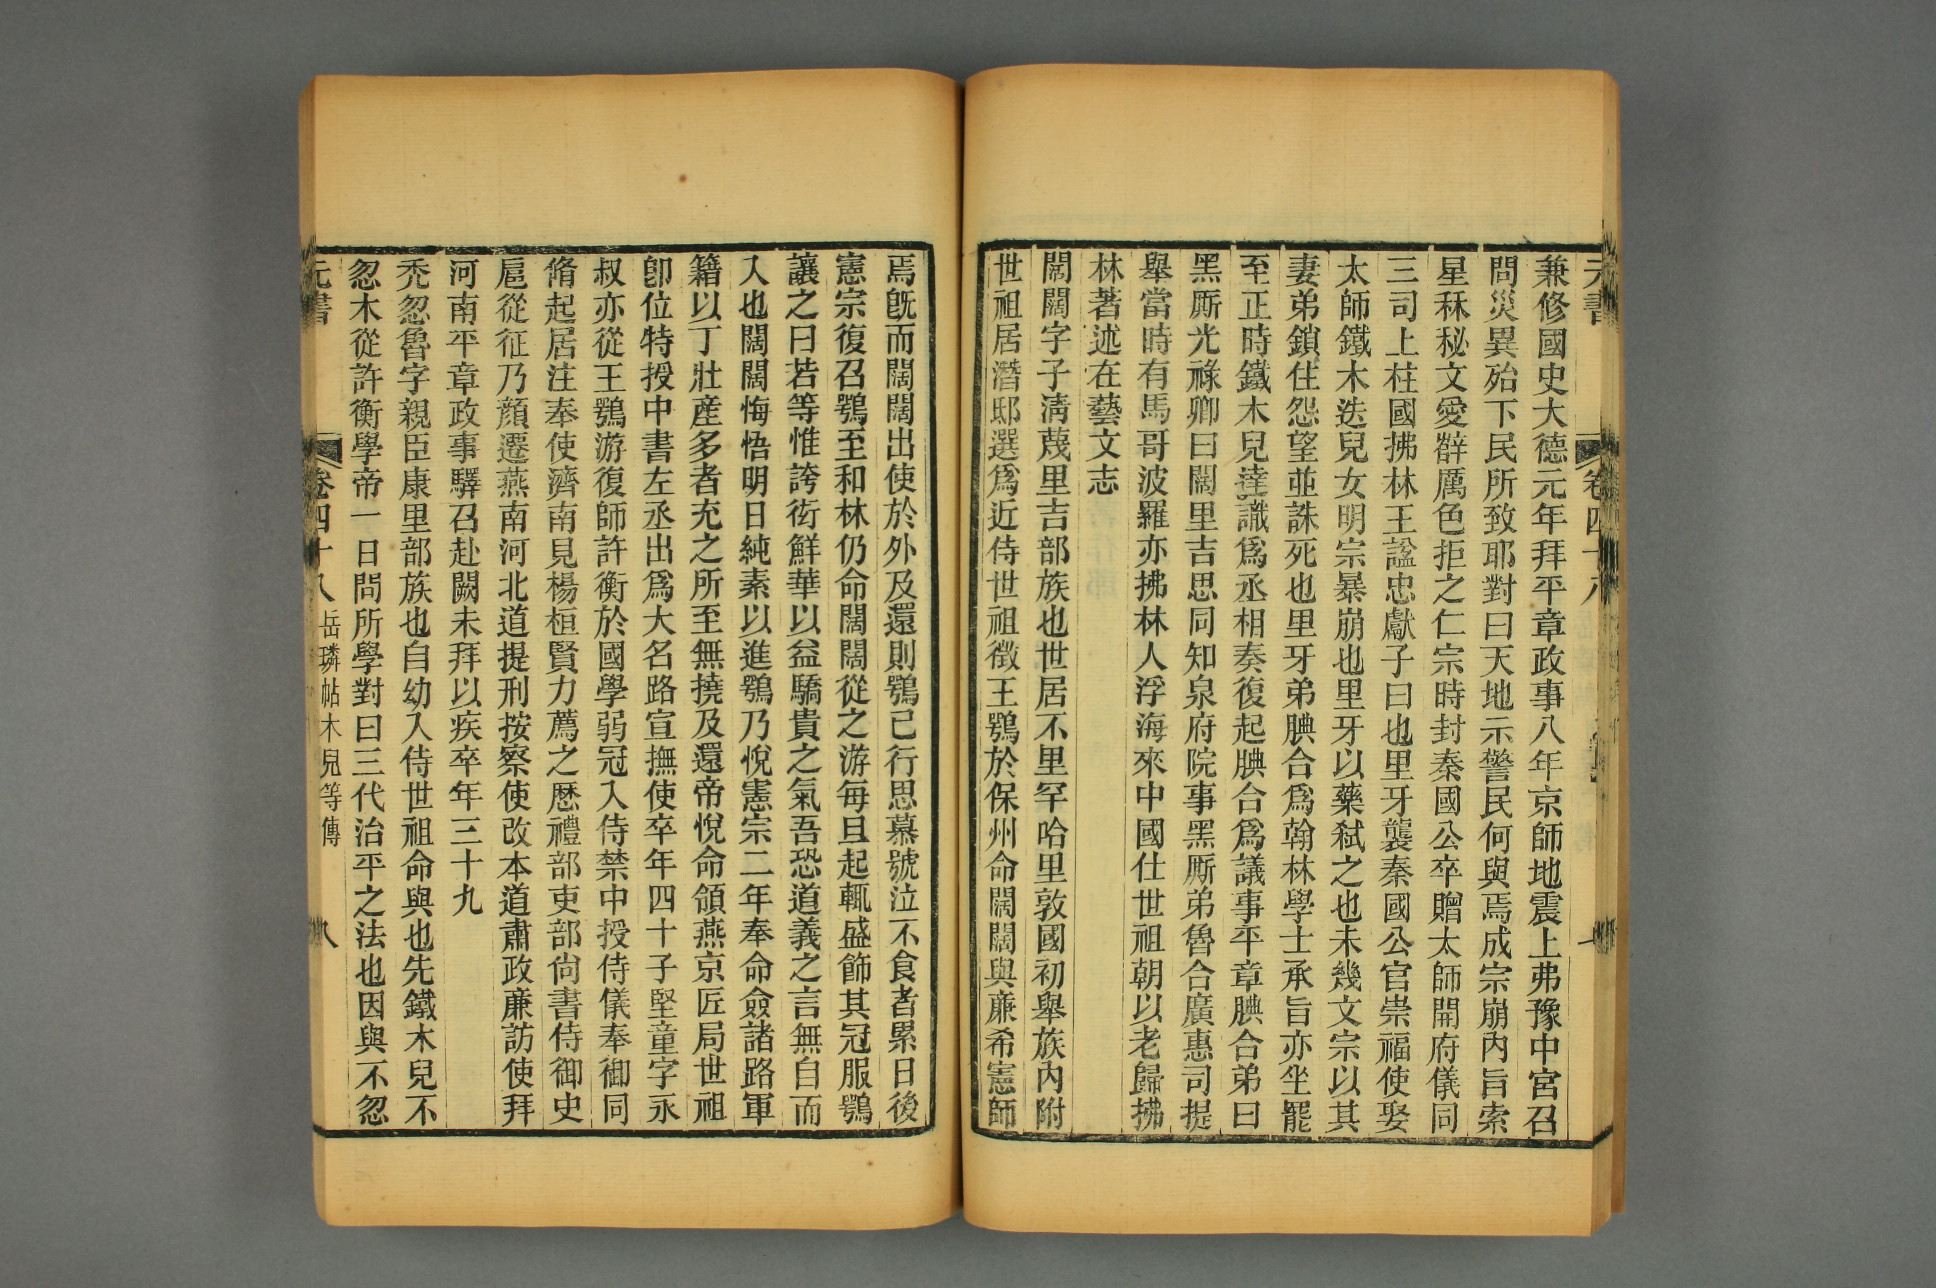 元書
卷四十八
兼修國史大德元年拜平章政事八年京師地震上弗豫中宮召
問災異殆下民所致耶對曰天地示警民何與焉成宗崩內旨索
星秝秘文愛辥厲色拒之仁宗時封秦國公卒贈太師開府儀同
三司上柱國拂林王諡忠獻子曰也里牙襲秦國公官崇福使娶
太師鐵木迭兒女明宗暴崩也里牙以藥弑之也未幾文宗以其
妻弟鎖住怨望並誅死也里牙弟腆合爲翰林學士承旨亦坐罷
至正時鐵木兒達識爲丞相奏復起腆合爲議事平章腆合弟曰
黑厮光祿卿曰闊里吉思同知泉府院事黑厮弟魯合廣惠司提
舉當時有馬哥波羅亦拂林人浮海來中國仕世祖朝以老歸拂
林著述在藝文志
闊闊字子淸蔑里吉部族也世居不里罕哈里敦國初舉族內附
世祖居潛邸選爲近侍世祖徵王鶚於保州命闊闊與亷希憲師
焉旣而闊闊出使於外及還則鶚已行思慕號泣不食者累日後
憲宗復召鶚至和林仍命闊闊從之游每旦起輒盛飾其冠服鶚
讓之曰若等惟誇衒鮮華以益驕貴之氣吾恐道義之言無自而
入也闊闊悔悟明日純素以進鶚乃悅憲宗二年奉命僉諸路軍
籍以丁壯產多者充之所至無撓及還帝悅命領燕京匠局世祖
卽位特授中書左丞出爲大名路宣撫使卒年四十子堅童字永
叔亦從王鶚游復師許衡於國學弱冠入侍禁中授侍儀奉御同
脩起居注奉使濟南見楊桓賢力薦之歴禮部吏部尙書侍御史
扈從征乃顏遷燕南河北道提刑按察使改本道肅政亷訪使拜
河南平章政事驛召赴闕未拜以疾卒年三十九
禿忽魯字親臣康里部族也自幼入侍世祖命與也先鐵木兒不
忽木從許衡學帝一日問所學對曰三代治平之法也因與不忽
元書
卷四十八
岳璘帖木兒等傳
八